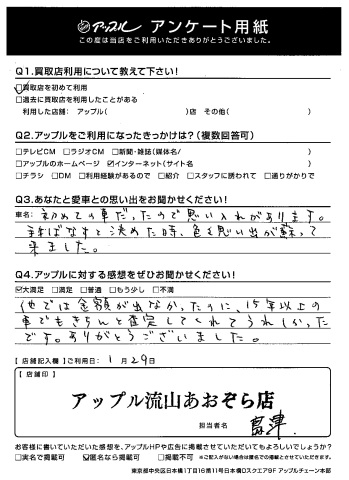 アップル アンケート用紙
この度は当店をご利用いただきありがとうございました。
Q1.買取店利用について教えて下さい!
☑買取店を初めて利用
□過去に買取店を利用したことがある
利用した店舗: アップル( )店 その他( )
Q2.アップルをご利用になったきっかけは?(複数回答可)
□テレビCM □ラジオCM □新聞・雑誌(媒体名/ )
□アップルのホームページ ☑インターネット(サイト名 )
□チラシ □DM □利用経験があるので □紹介 □スタッフに誘われて □通りがかりで
Q3.あなたと愛車との思い出をお聞かせください!
車名: 初めての車だったので思い入れがあります。
手ばなすと決めた時、色々思い出が蘇って
来ました。
Q4.アップルに対する感想をぜひお聞かせください!
☑大満足 □満足 □普通 □もう少し □不満
他では金額が出なかったのに、15年以上の
車でもきちんと査定してくれてうれしかった
です。ありがとうございました。
【店舗記入欄】ご利用日: 1月29日
【店舗印】
アップル流山あおぞら店
担当者名
お客様に書いていただいた感想を、アップルHPや広告に掲載させていただいてもよろしいでしょうか?
□実名で掲載可 ☑匿名なら掲載可 □掲載不可 ※ご記入がない場合は匿名での掲載とさせていただきます。
東京都中央区日本橋1丁目16番11号日本橋Dスクエア9F アップルチェーン本部